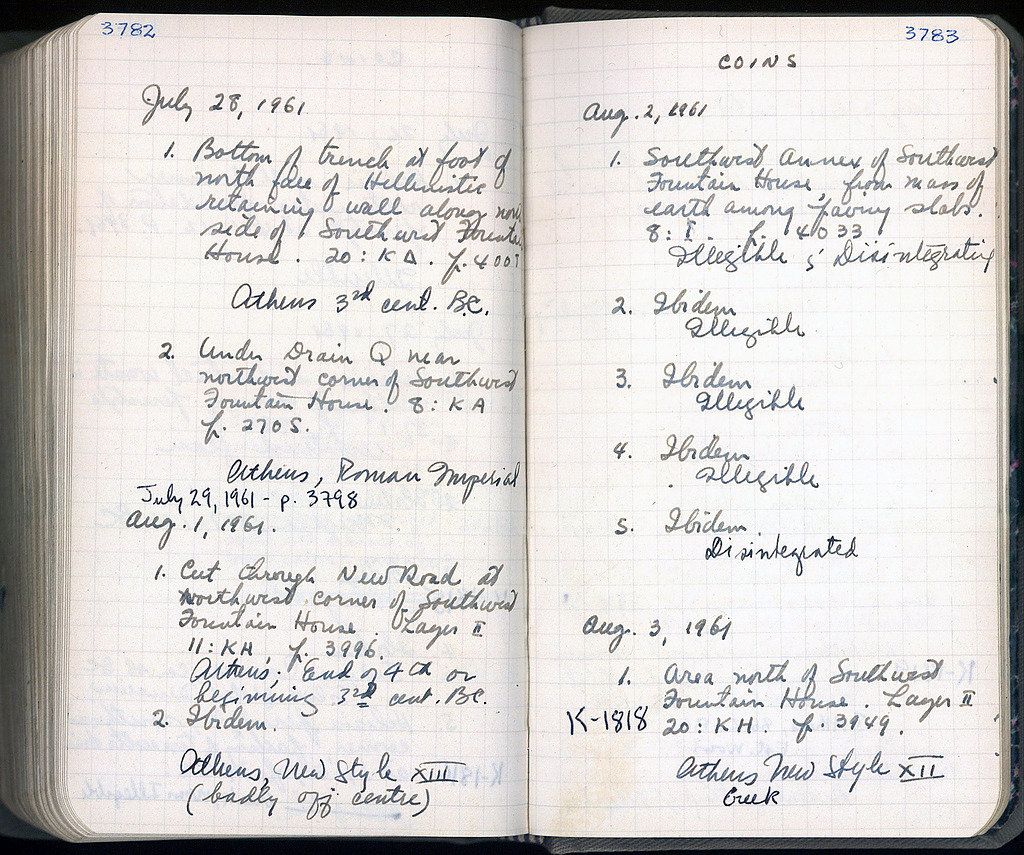 3782
July 28, 1961
1. Bottom of trench at foot of
north face of Hellenistic
retaining wall along nor
side of Southwest Fountai
House. 20: KΔ. p. 400
Athens 3rd cent. B.C.
2. Under Drain Q near
northwest corner of Southwest
Fountain House. 8: KA
p. 2705.
Athens, Roman Imperial
July 29, 1961 - p. 3798
Aug. 1, 1961.
1. Cut through New Road at
northwest corner of Southwest
Fountain House. Layer II
11: KH, p. 3996
Athens; End of 4th or
beginning 3rd cent. B.C.
2. Ibidem.
Athens, New Style XIII
(badly off centre)
3783
COINS
Aug. 2, 1961
1. Southwest Annex of Southwest
Fountain House, from mass of
earth among paving slabs.
8: I. p. 4033
Illegible & Disintegrating
2. Ibidem
Illegible
3. Ibidem
Illegible
4. Ibidem
Illegible
5. Ibidem
Disintegrated
Aug. 3, 1961
1. Area north of Southwest
Fountain House. Layer II
K-1818 20: KH. p. 3949.
Athens New Style XII
Greek